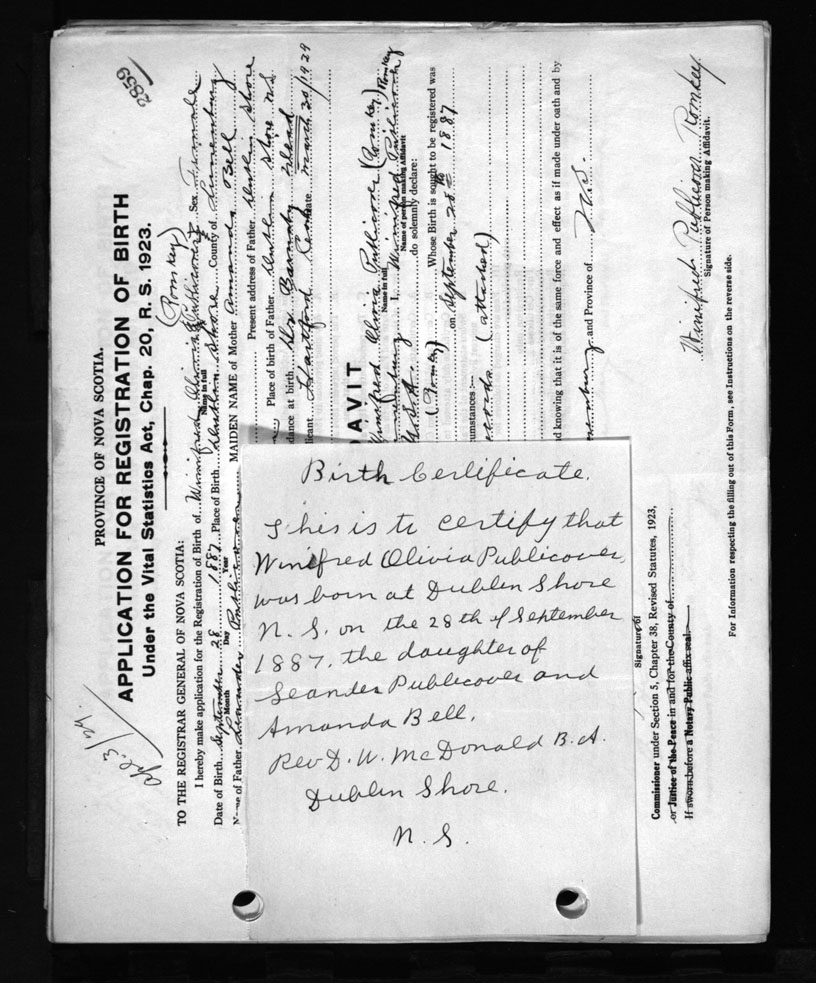 2859
Apl 3/24.
PROVINCE OF NOVA SCOTIA.
APPLICATION FOR REGISTRATION OF BIRTH
Under the Vital Statistics Act, Chap. 20, R. S. 1923.
TO THE REGISTRAR GENERAL OF NOVA SCOTIA:
(Romkey)
I hereby make application for the Registration of Birth of Winifred Olivia Publicover Sex Female
Name in full
Date of Birth September 28 1887 Place of Birth Dublin Shore County of Lunenburg
Month Day Year
Name of Father Publicover MAIDEN NAME of Mother Amanda Bell
Present address of Father Dublin Shore
Place of birth of Father Dublin Shore N.S.
dance at birth Dr Barnaby dead
licant Hartford Date March 20/1924
DAVIT
Winifred Olivia Publicover (Romkey)
Name in full
I, Winifred Publicover Romkey
Name of person making Affidavit
U.S.A. do solemnly declare:
Whose Birth is sought to be registered was
(Romkey) on September 28th 1887
cumstances:—
(attached)
nd knowing that it is of the same force and effect as if made under oath and by
and Province of N.S.
Winifred Publicover Romkey
Signature of Person making Affidavit.
Signature of
Commissioner under Section 5, Chapter 38, Revised Statutes, 1923,
or Justice of the Peace in and for the County of
If sworn before a Notary Public affix seal.
For Information respecting the filling out of this Form, see Instructions on the reverse side.
Birth Certificate.
This is to certify that
Winifred Olivia Publicover,
was born at Dublin Shore
N. S. on the 28th of September
1887, the daughter of
Leander Publicover and
Amanda Bell.
Rev D. W. McDonald B. A.
Dublin Shore.
N. S.